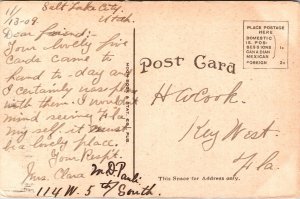 Salt Lake City,
Utah.
11/
13-09
Dear friend:
Your lovely five
cards came to
hand to-day and
I certainly was pleased
with them. I wouldn't
mind seeing Fla.
my self. it must
be a lovely place.
Your Resp't.
Mrs. Clara M.D.
114 W. 5th South.
Post Card
PLACE POSTAGE
HERE
DOMESTIC
IS. POS-
SESSIONS
CANADIAN
MEXICAN
FOREIGN 2c
H A Cook.
Key West.
Fla.
This Space for Address only.